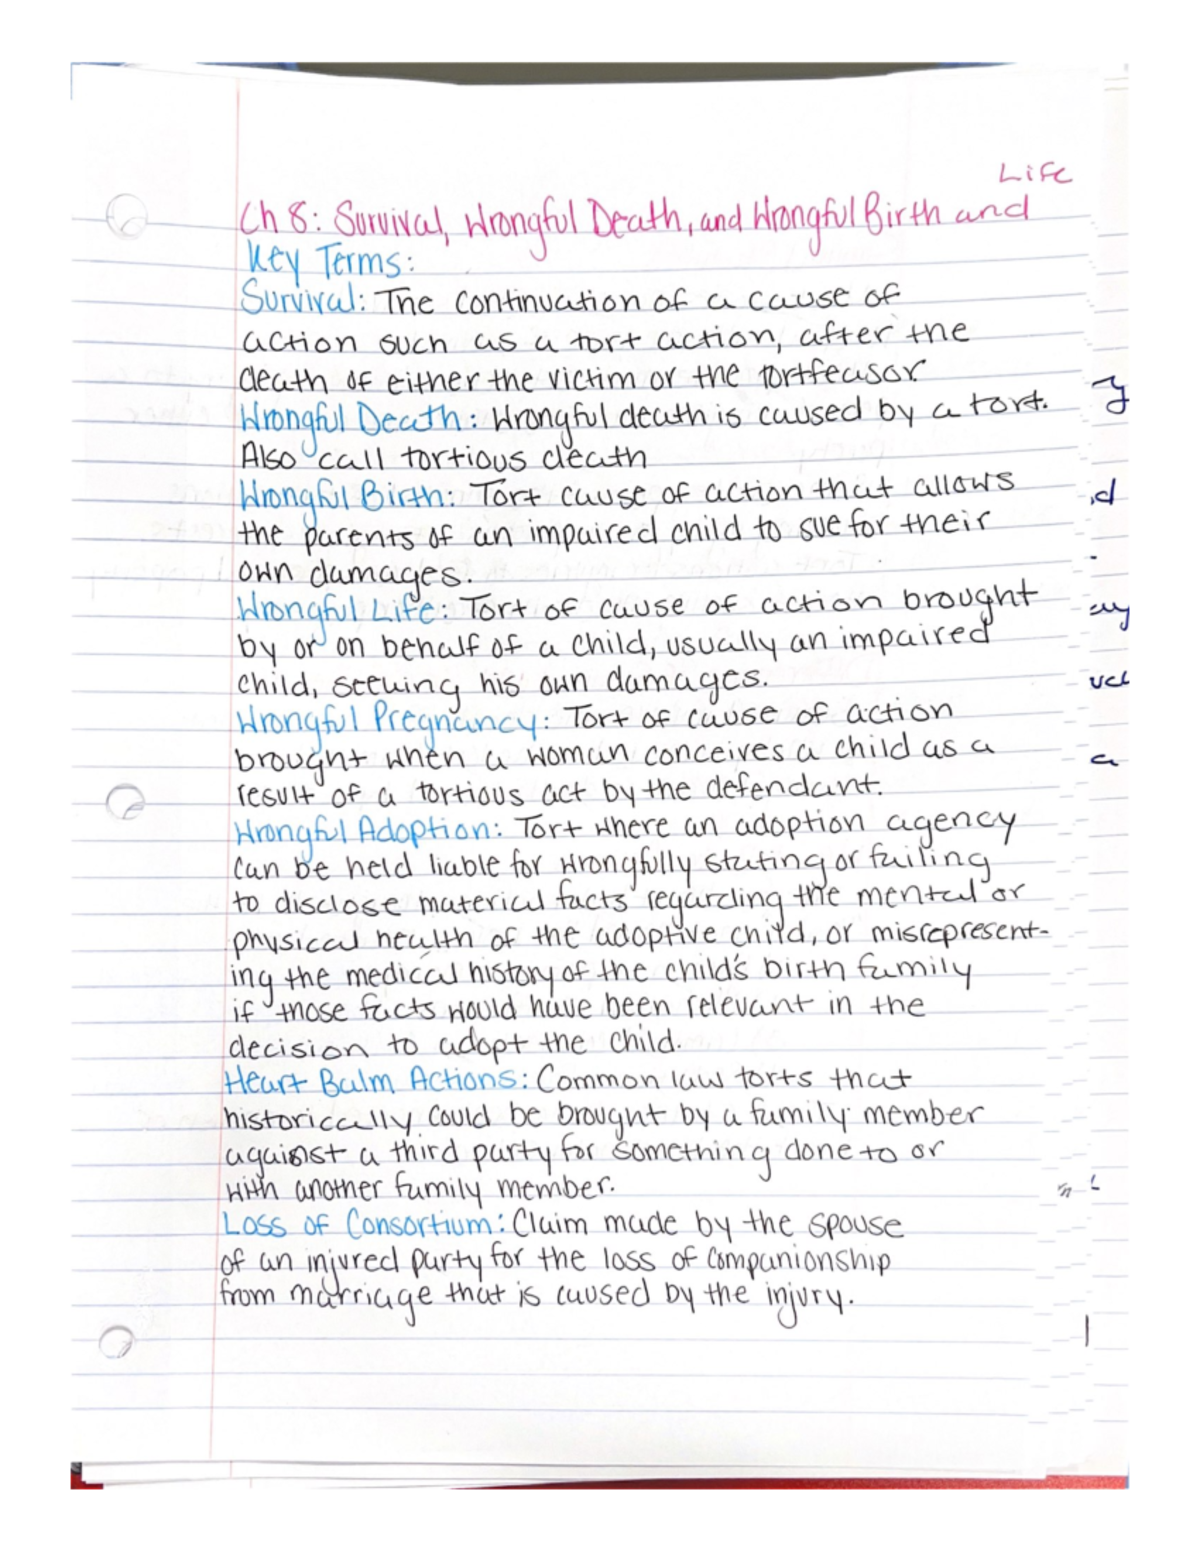 Life
Ch 8: Survival, Wrongful Death, and Wrongful Birth and
Key Terms:
Survival: The continuation of a cause of
action such as a tort action, after the
death of either the victim or the tortfeasor.
Wrongful Death: Wrongful death is caused by a tort.
Also call tortious death
Wrongful Birth: Tort cause of action that allows
the parents of an impaired child to sue for their
own damages.
Wrongful Life: Tort of cause of action brought
by or on behalf of a child, usually an impaired
child, seeking his own damages.
Wrongful Pregnancy: Tort of cause of action
brought when a woman conceives a child as a
result of a tortious act by the defendant.
Wrongful Adoption: Tort where an adoption agency
can be held liable for wrongfully stating or failing
to disclose material facts regarding the mental or
physical health of the adoptive child, or misrepresent-
ing the medical history of the child's birth family
if those facts would have been relevant in the
decision to adopt the child.
Heart Balm Actions: Common law torts that
historically could be brought by a family member
against a third party for something done to or
with another family member.
Loss of Consortium: Claim made by the spouse
of an injured party for the loss of companionship
from marriage that is caused by the injury.